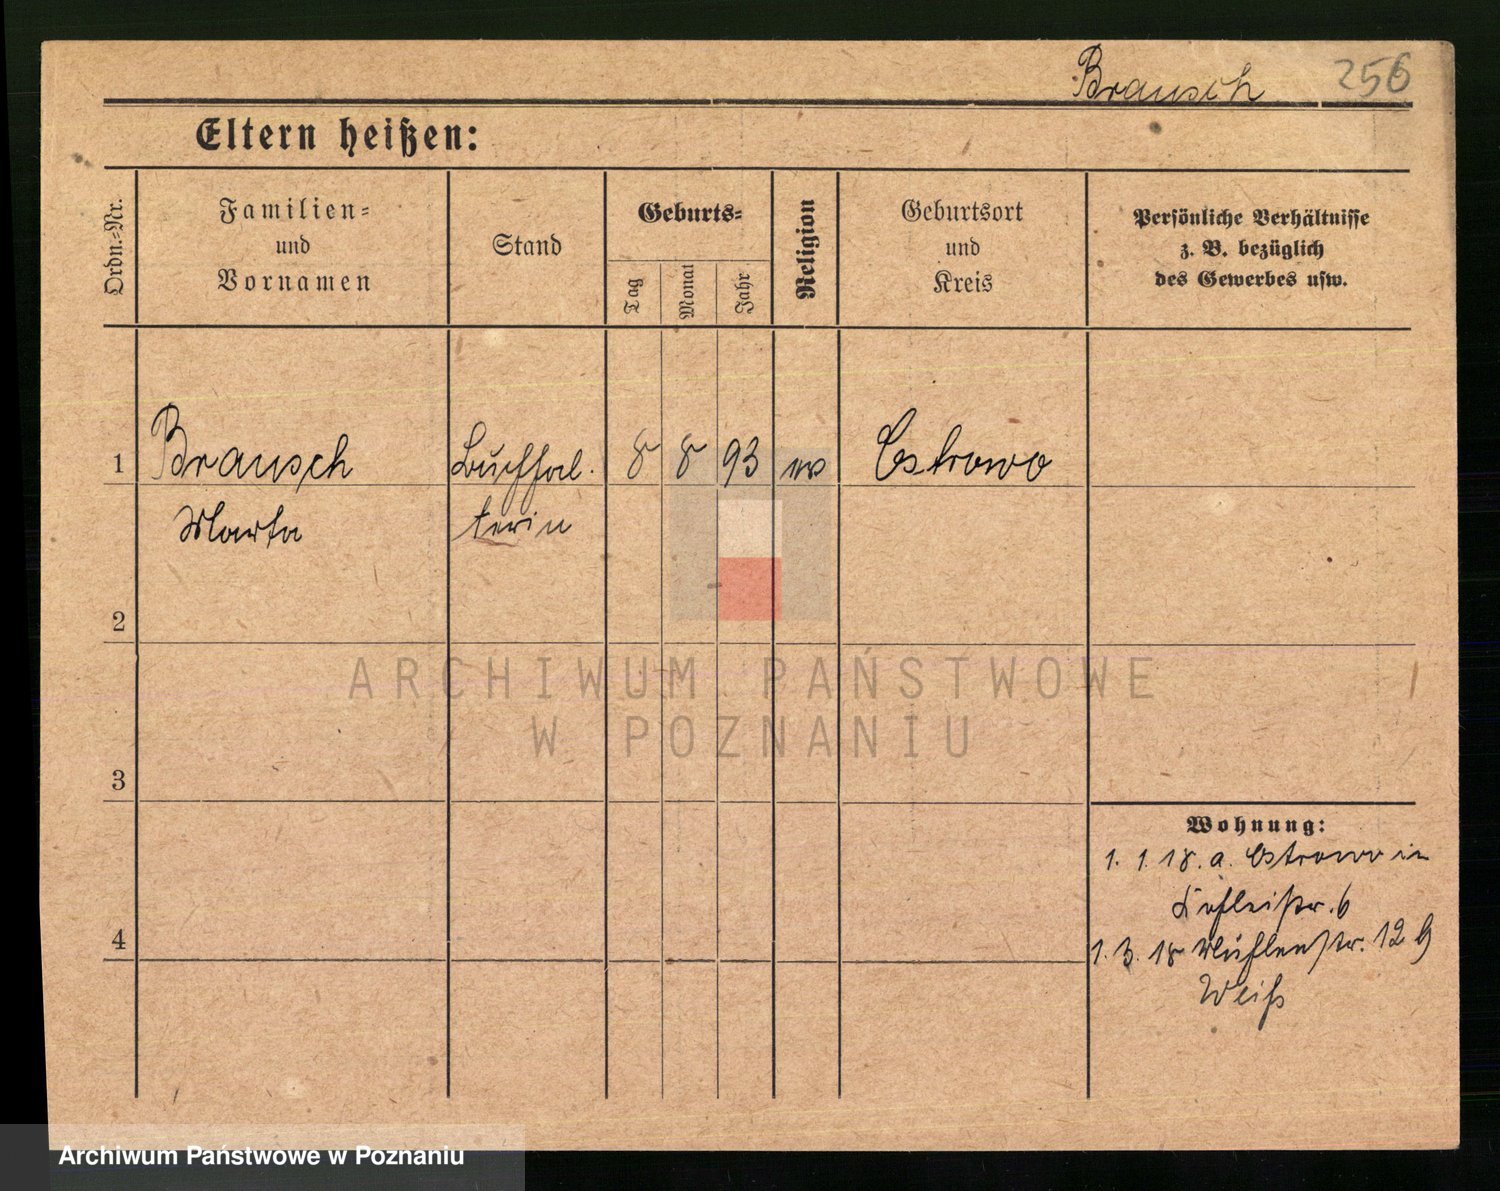 Brausch 256
Eltern heißen:
Ordn.-Nr.
Familien-
und
Vornamen
Stand
Geburts-
Tag
Monat
Jahr
Religion
Geburtsort
und
Kreis
Persönliche Verhältnisse
z. B. bezüglich
des Gewerbes usw.
1 Brausch Buchhal. 8 8 93 Ostrowo
Marta terin
2
3
4
Wohnung:
1. 1. 18. a. Ostrowo in
1. 3. 18 Mühlenstr. 12
Weiß
ARCHIWUM PAŃSTWOWE
W POZNANIU
Archiwum Państwowe w Poznaniu